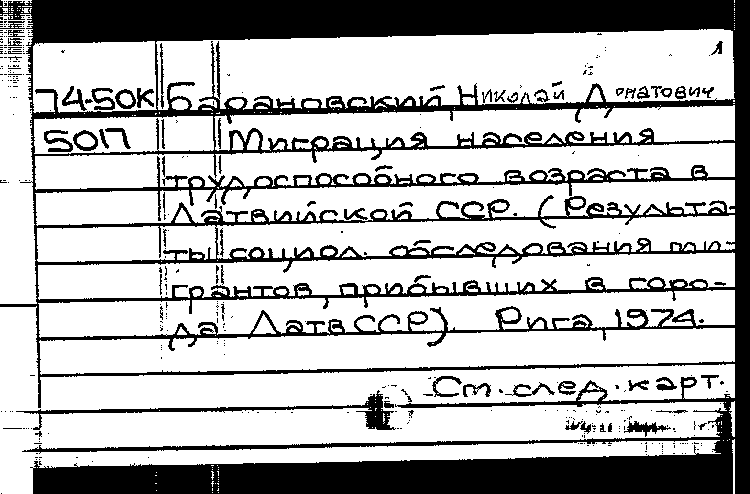 1
74-50К Барановский, Николай Донатович
50П Миграция населения
трудоспособного возраста в
Латвийской ССР. (Результа-
ты социол. обследования ми-
грантов, прибывших в горо-
да ЛатвССР). Рига, 1974.
См. след. карт.